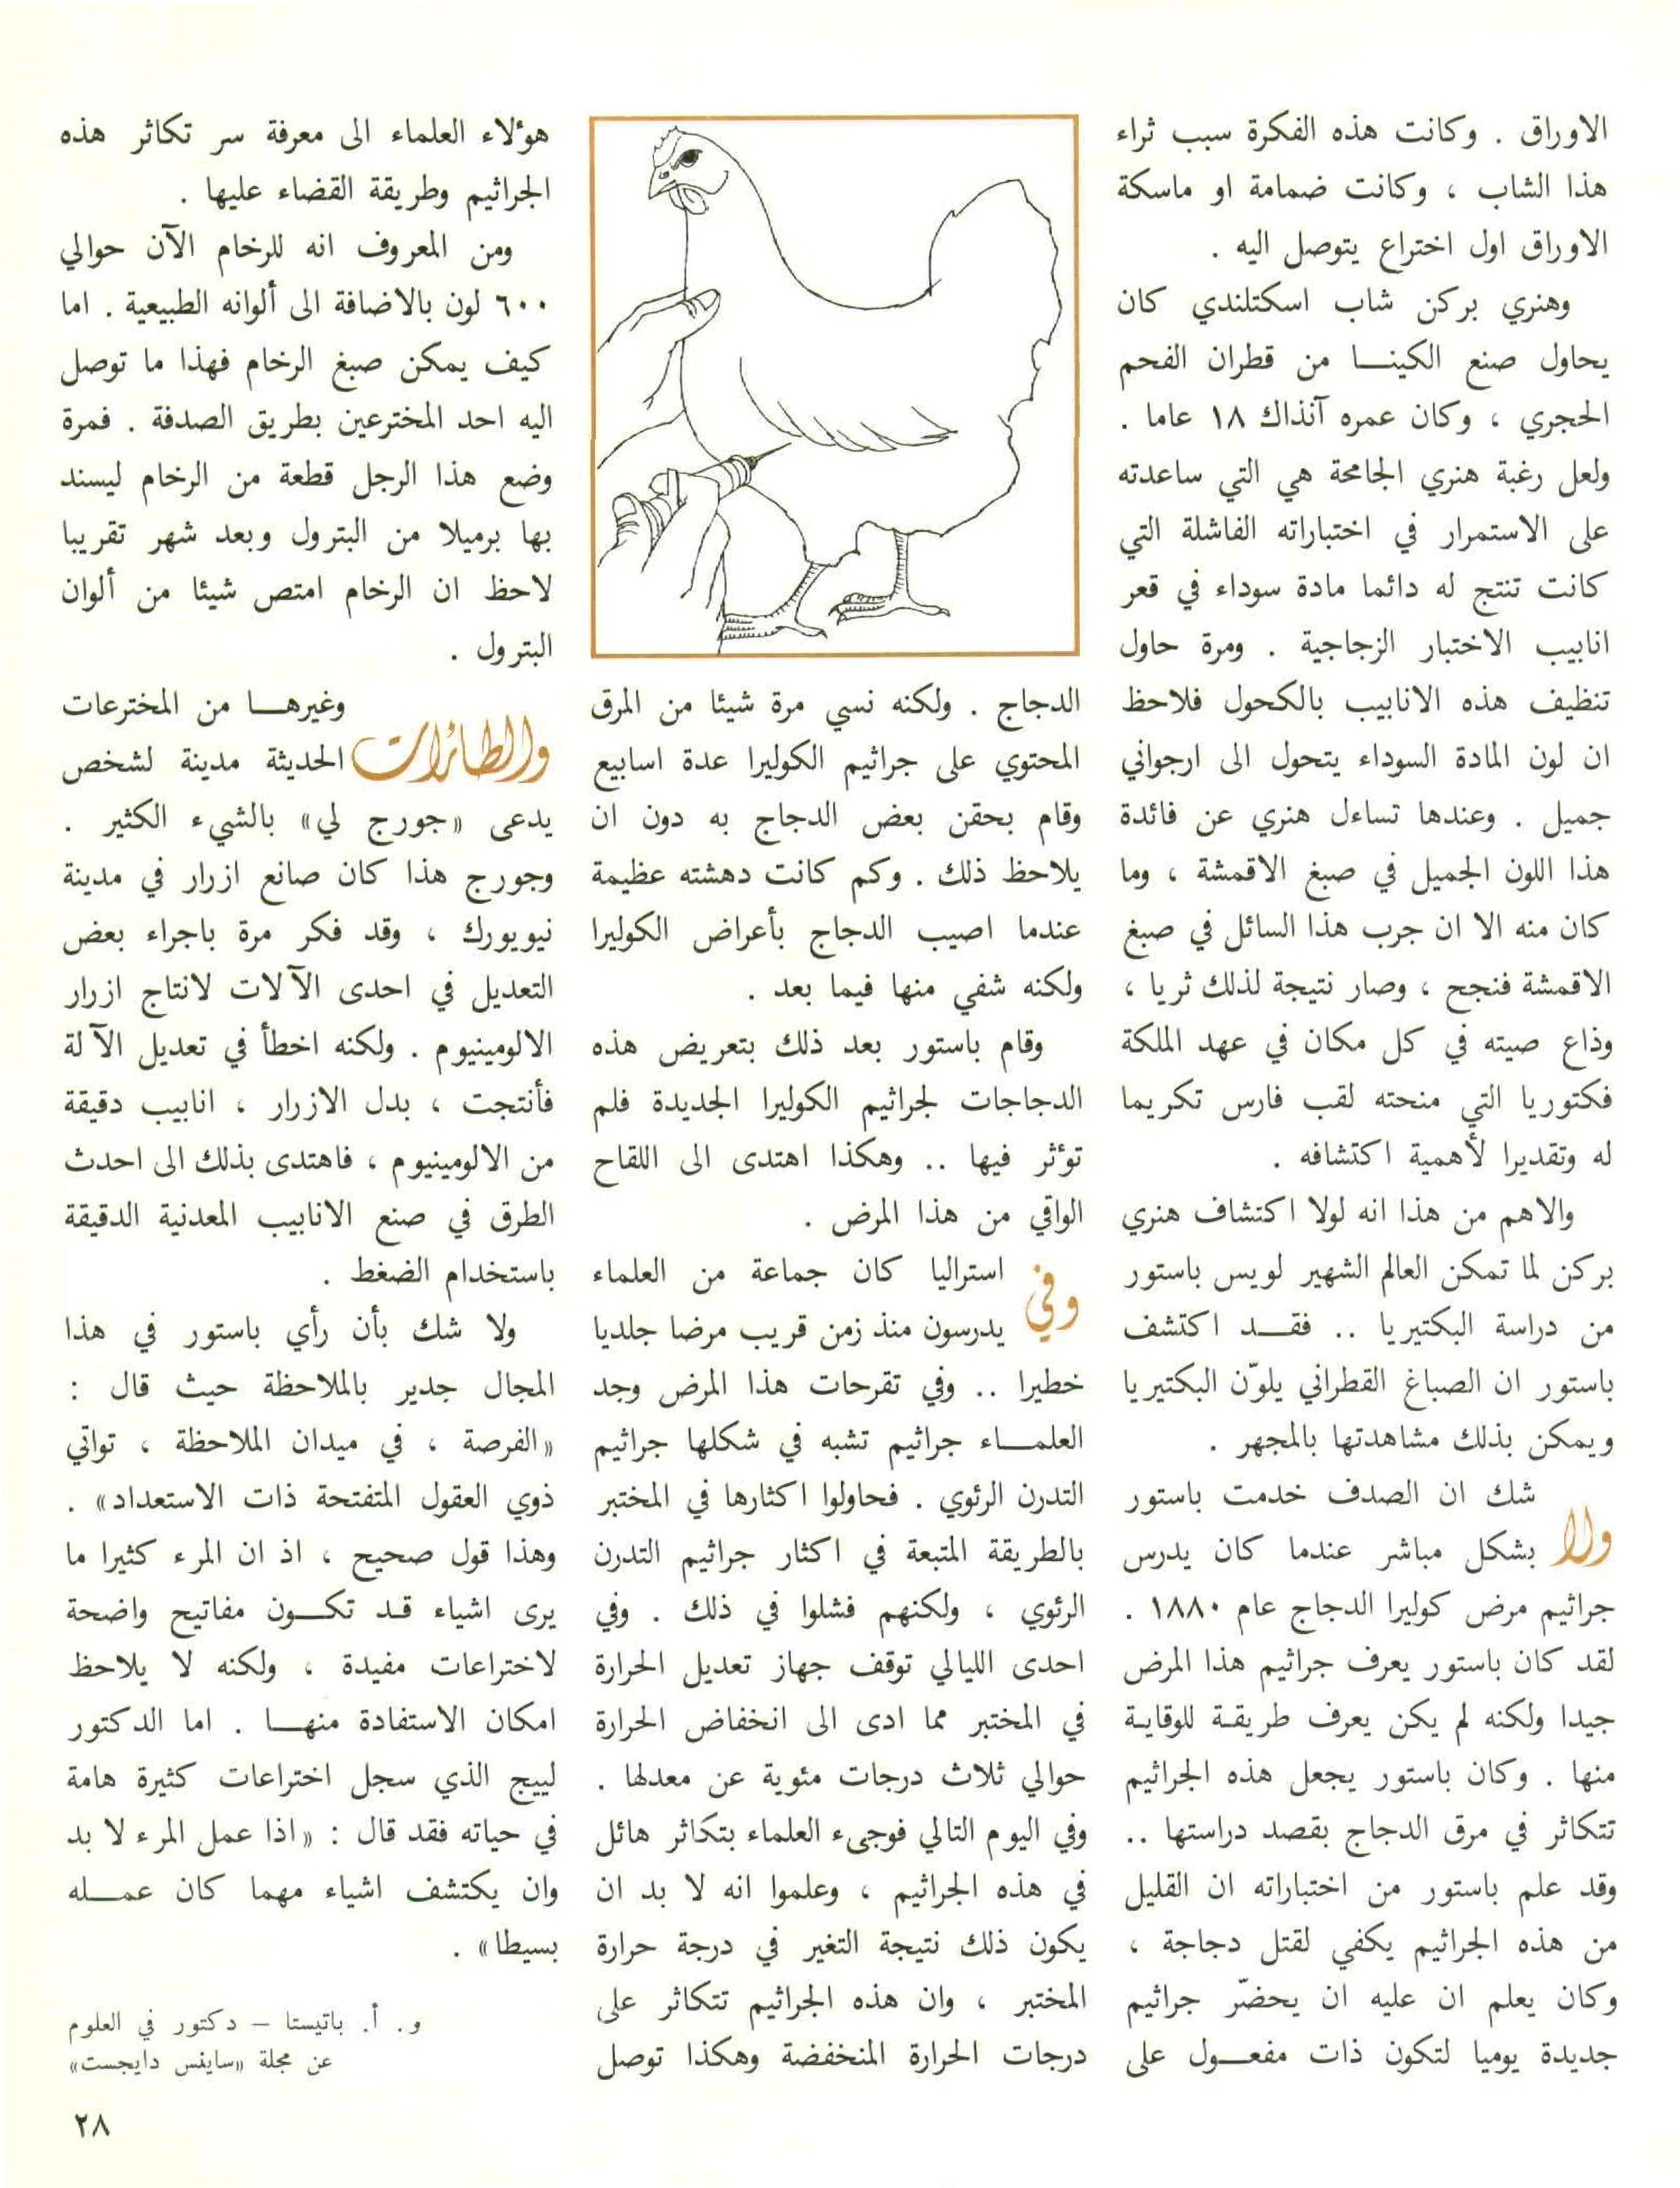 الاوراق . وكانت هذه الفكرة سبب ثراء
هذا الشاب ، وكانت ضمامة او ماسكة
الاوراق اول اختراع يتوصل اليه .
وهنري بركن شاب اسكتلندي كان
يحاول صنع الكينـا من قطران الفحم
الحجري ، وكان عمره آنذاك ١٨ عاما .
ولعل رغبة هنري الجامحة هي التي ساعدته
على الاستمرار في اختباراته الفاشلة التي
كانت تنتج له دائما مادة سوداء في قعر
انابيب الاختبار الزجاجية . ومرة حاول
تنظيف هذه الانابيب بالكحول فلاحظ
ان لون المادة السوداء يتحول الى ارجواني
جميل . وعندها تساءل هنري عن فائدة
هذا اللون الجميل في صبغ الاقمشة ، وما
كان منه الا ان جرب هذا السائل في صبغ
الاقمشة فنجح ، وصار نتيجة لذلك ثريا ،
وذاع صيته في كل مكان في عهد الملكة
فكتوريا التي منحته لقب فارس تكريما
له وتقديرا لأهمية اكتشافه .
والاهم من هذا انه لولا اكتشاف هنري
بركن لما تمكن العالم الشهير لويس باستور
من دراسة البكتيريا .. فقـد اكتشف
باستور ان الصباغ القطراني يلوّن البكتيريا
ويمكن بذلك مشاهدتها بالمجهر .
ولا شك ان الصدف خدمت باستور
بشكل مباشر عندما كان يدرس
جراثيم مرض كوليرا الدجاج عام ١٨٨٠ .
لقد كان باستور يعرف جراثيم هذا المرض
جيدا ولكنه لم يكن يعرف طريقة للوقاية
منها . وكان باستور يجعل هذه الجراثيم
تتكاثر في مرق الدجاج بقصد دراستها ..
وقد علم باستور من اختباراته ان القليل
من هذه الجراثيم يكفي لقتل دجاجة ،
وكان يعلم ان عليه ان يحضّر جراثيم
جديدة يوميا لتكون ذات مفعـول على
الدجاج . ولكنه نسي مرة شيئا من المرق
المحتوي على جراثيم الكوليرا عدة اسابيع
وقام بحقن بعض الدجاج به دون ان
يلاحظ ذلك . وكم كانت دهشته عظيمة
عندما اصيب الدجاج بأعراض الكوليرا
ولكنه شفي منها فيما بعد .
وقام باستور بعد ذلك بتعريض هذه
الدجاجات لجراثيم الكوليرا الجديدة فلم
تؤثر فيها .. وهكذا اهتدى الى اللقاح
الواقي من هذا المرض .
وفي استراليا كان جماعة من العلماء
يدرسون منذ زمن قريب مرضا جلديا
خطيرا .. وفي تقرحات هذا المرض وجد
العلمـاء جراثيم تشبه في شكلها جراثيم
التدرن الرئوي . فحاولوا اكثارها في المختبر
بالطريقة المتبعة في اكثار جراثيم التدرن
الرئوي ، ولكنهم فشلوا في ذلك . وفي
احدى الليالي توقف جهاز تعديل الحرارة
في المختبر مما ادى الى انخفاض الحرارة
حوالي ثلاث درجات مئوية عن معدلها .
وفي اليوم التالي فوجىء العلماء بتكاثر هائل
في هذه الجراثيم ، وعلموا انه لا بد ان
يكون ذلك نتيجة التغير في درجة حرارة
المختبر ، وان هذه الجراثيم تتكاثر على
درجات الحرارة المنخفضة وهكذا توصل
هؤلاء العلماء الى معرفة سر تكاثر هذه
الجراثيم وطريقة القضاء عليها .
ومن المعروف انه للرخام الآن حوالي
٦٠٠ لون بالاضافة الى ألوانه الطبيعية . اما
كيف يمكن صبغ الرخام فهذا ما توصل
اليه احد المخترعين بطريق الصدفة . فمرة
وضع هذا الرجل قطعة من الرخام ليسند
بها برميلا من البترول وبعد شهر تقريبا
لاحظ ان الرخام امتص شيئا من ألوان
البترول .
والطائرات وغيرهـا من المخترعات
الحديثة مدينة لشخص
يدعى «جورج لي» بالشيء الكثير .
وجورج هذا كان صانع ازرار في مدينة
نيويورك ، وقد فكر مرة باجراء بعض
التعديل في احدى الآلات لانتاج ازرار
الالومينيوم . ولكنه اخطأ في تعديل الآلة
فأنتجت ، بدل الازرار ، انابيب دقيقة
من الالومينيوم ، فاهتدى بذلك الى احدث
الطرق في صنع الانابيب المعدنية الدقيقة
باستخدام الضغط .
ولا شك بأن رأي باستور في هذا
المجال جدير بالملاحظة حيث قال :
«الفرصة ، في ميدان الملاحظة ، تواتي
ذوي العقول المتفتحة ذات الاستعداد» .
وهذا قول صحيح ، اذ ان المرء كثيرا ما
يرى اشياء قد تكـون مفاتيح واضحة
لاختراعات مفيدة ، ولكنه لا يلاحظ
امكان الاستفادة منهـا . اما الدكتور
لييج الذي سجل اختراعات كثيرة هامة
في حياته فقد قال : «اذا عمل المرء لا بد
وان يكتشف اشياء مهما كان عمـله
بسيطا» .
و. أ. باتيستا – دكتور في العلوم
عن مجلة «ساينس دايجست»
٢٨